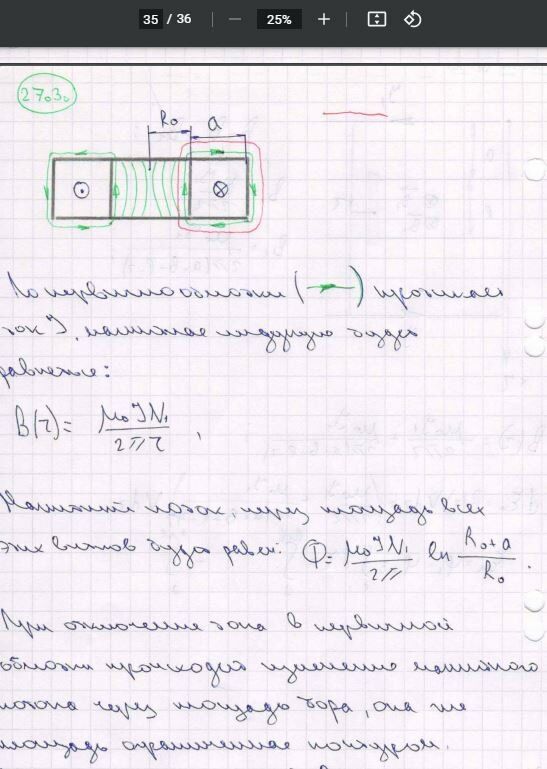 35 / 36
25%
27.3.
R₀
a
По первичной обмотки ( ) протекает
ток J, магнитная индукция будет
равна:
B(r) = μ₀JN₁ / 2πr ,
Магнитный поток, через площадь всех
этих витков будет равен: Ф = μ₀JN₁ / 2π ln R₀+a / R₀ .
При отключение тока в первичной
обмотки происходит изменение магнитного
потока через площадь тора, она же
площадь ограниченная контуром.